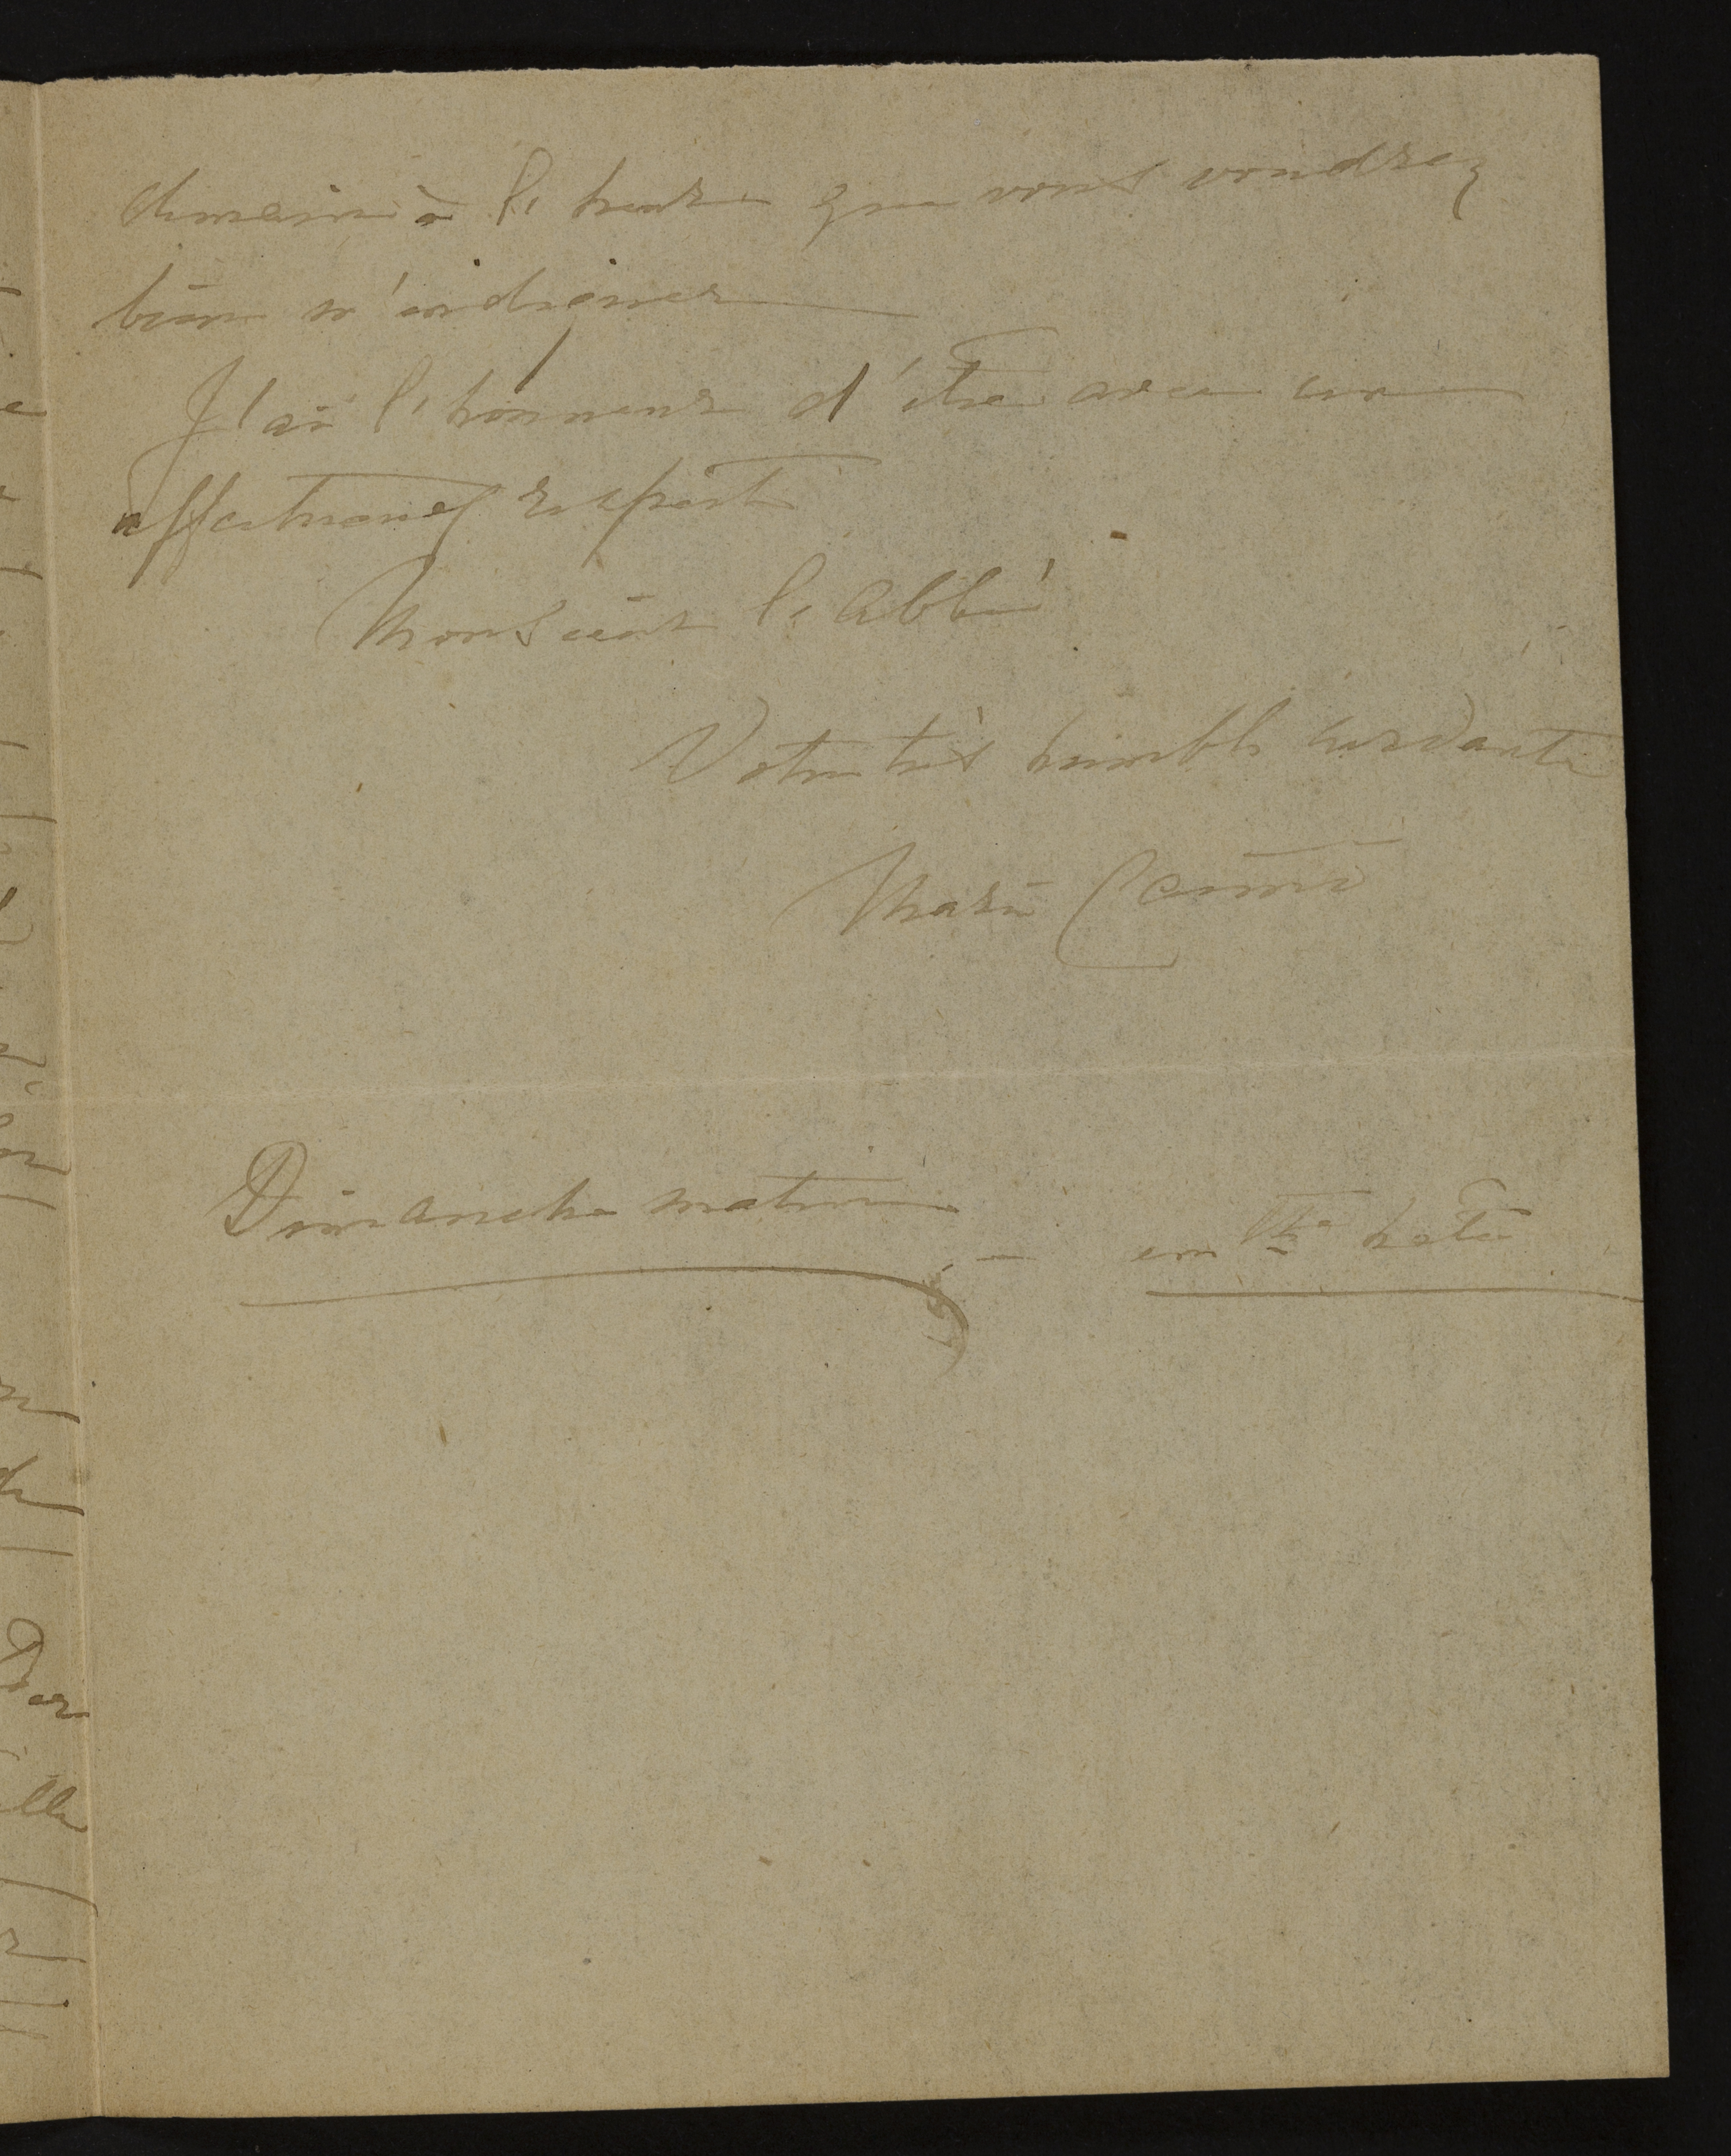 demain à l'heure que vous voudrez
bien m'indiquer
J'ai l'honneur d'être avec un
affectueux respect
Monsieur l'Abbé
Votre très humble servante
Marie
Dimanche matin
en tte hâte